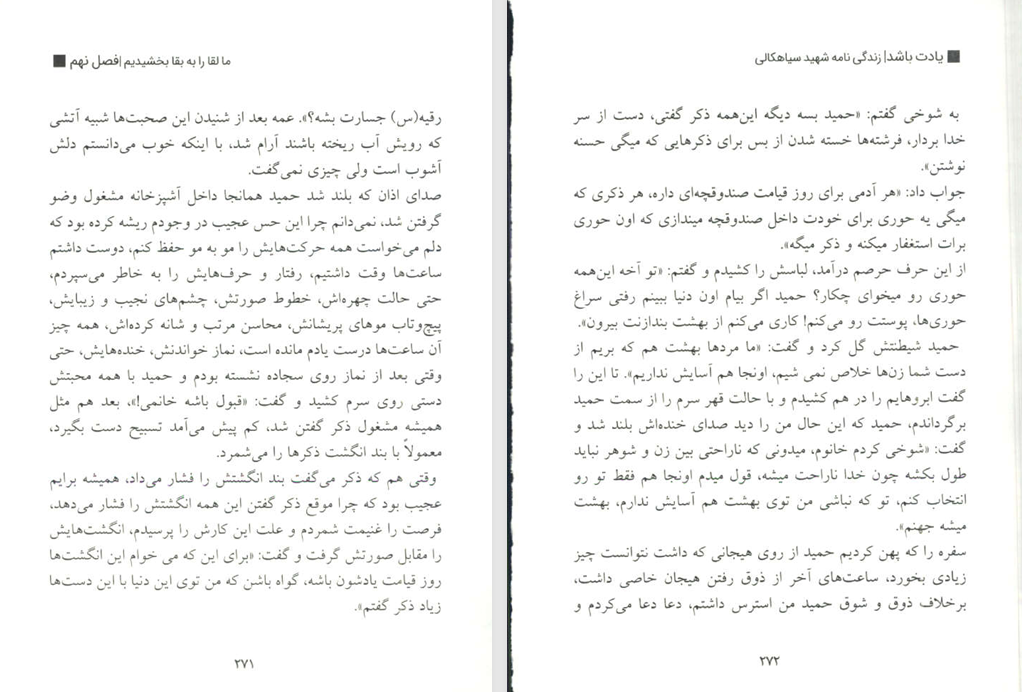 ما لقا را به بقا بخشیدیم |فصل نهم ■
رقیه(س) جسارت بشه؟». عمه بعد از شنیدن این صحبت‌ها شبیه آتشی
که رویش آب ریخته باشند آرام شد، با اینکه خوب می‌دانستم دلش
آشوب است ولی چیزی نمی‌گفت.
صدای اذان که بلند شد حمید همانجا داخل آشپزخانه مشغول وضو
گرفتن شد، نمی‌دانم چرا این حس عجیب در وجودم ریشه کرده بود که
دلم می‌خواست همه حرکت‌هایش را مو به مو حفظ کنم، دوست داشتم
ساعت‌ها وقت داشتیم، رفتار و حرف‌هایش را به خاطر می‌سپردم،
حتی حالت چهره‌اش، خطوط صورتش، چشم‌های نجیب و زیبایش،
پیچ‌وتاب موهای پریشانش، محاسن مرتب و شانه کرده‌اش، همه چیز
آن ساعت‌ها درست یادم مانده است، نماز خواندنش، خنده‌هایش، حتی
وقتی بعد از نماز روی سجاده نشسته بودم و حمید با همه محبتش
دستی روی سرم کشید و گفت: «قبول باشه خانمی!»، بعد هم مثل
همیشه مشغول ذکر گفتن شد، کم پیش می‌آمد تسبیح دست بگیرد،
معمولاً با بند انگشت ذکرها را می‌شمرد.
وقتی هم که ذکر می‌گفت بند انگشتش را فشار می‌داد، همیشه برایم
عجیب بود که چرا موقع ذکر گفتن این همه انگشتش را فشار می‌دهد،
فرصت را غنیمت شمردم و علت این کارش را پرسیدم، انگشت‌هایش
را مقابل صورتش گرفت و گفت: «برای این که می خوام این انگشت‌ها
روز قیامت یادشون باشه، گواه باشن که من توی این دنیا با این دست‌ها
زیاد ذکر گفتم».
۲۷۱
■ یادت باشد| زندگی نامه شهید سیاهکالی
به شوخی گفتم: «حمید بسه دیگه این‌همه ذکر گفتی، دست از سر
خدا بردار، فرشته‌ها خسته شدن از بس برای ذکرهایی که میگی حسنه
نوشتن».
جواب داد: «هر آدمی برای روز قیامت صندوقچه‌ای داره، هر ذکری که
میگی یه حوری برای خودت داخل صندوقچه میندازی که اون حوری
برات استغفار میکنه و ذکر میگه».
از این حرف حرصم درآمد، لباسش را کشیدم و گفتم: «تو آخه این‌همه
حوری رو میخوای چکار؟ حمید اگر بیام اون دنیا ببینم رفتی سراغ
حوری‌ها، پوستت رو می‌کنم! کاری می‌کنم از بهشت بندازنت بیرون».
حمید شیطنتش گل کرد و گفت: «ما مردها بهشت هم که بریم از
دست شما زن‌ها خلاص نمی شیم، اونجا هم آسایش نداریم». تا این را
گفت ابروهایم را در هم کشیدم و با حالت قهر سرم را از سمت حمید
برگرداندم، حمید که این حال من را دید صدای خنده‌اش بلند شد و
گفت: «شوخی کردم خانوم، میدونی که ناراحتی بین زن و شوهر نباید
طول بکشه چون خدا ناراحت میشه، قول میدم اونجا هم فقط تو رو
انتخاب کنم، تو که نباشی من توی بهشت هم آسایش ندارم، بهشت
میشه جهنم».
سفره را که پهن کردیم حمید از روی هیجانی که داشت نتوانست چیز
زیادی بخورد، ساعت‌های آخر از ذوق رفتن هیجان خاصی داشت،
برخلاف ذوق و شوق حمید من استرس داشتم، دعا دعا می‌کردم و
۲۷۲